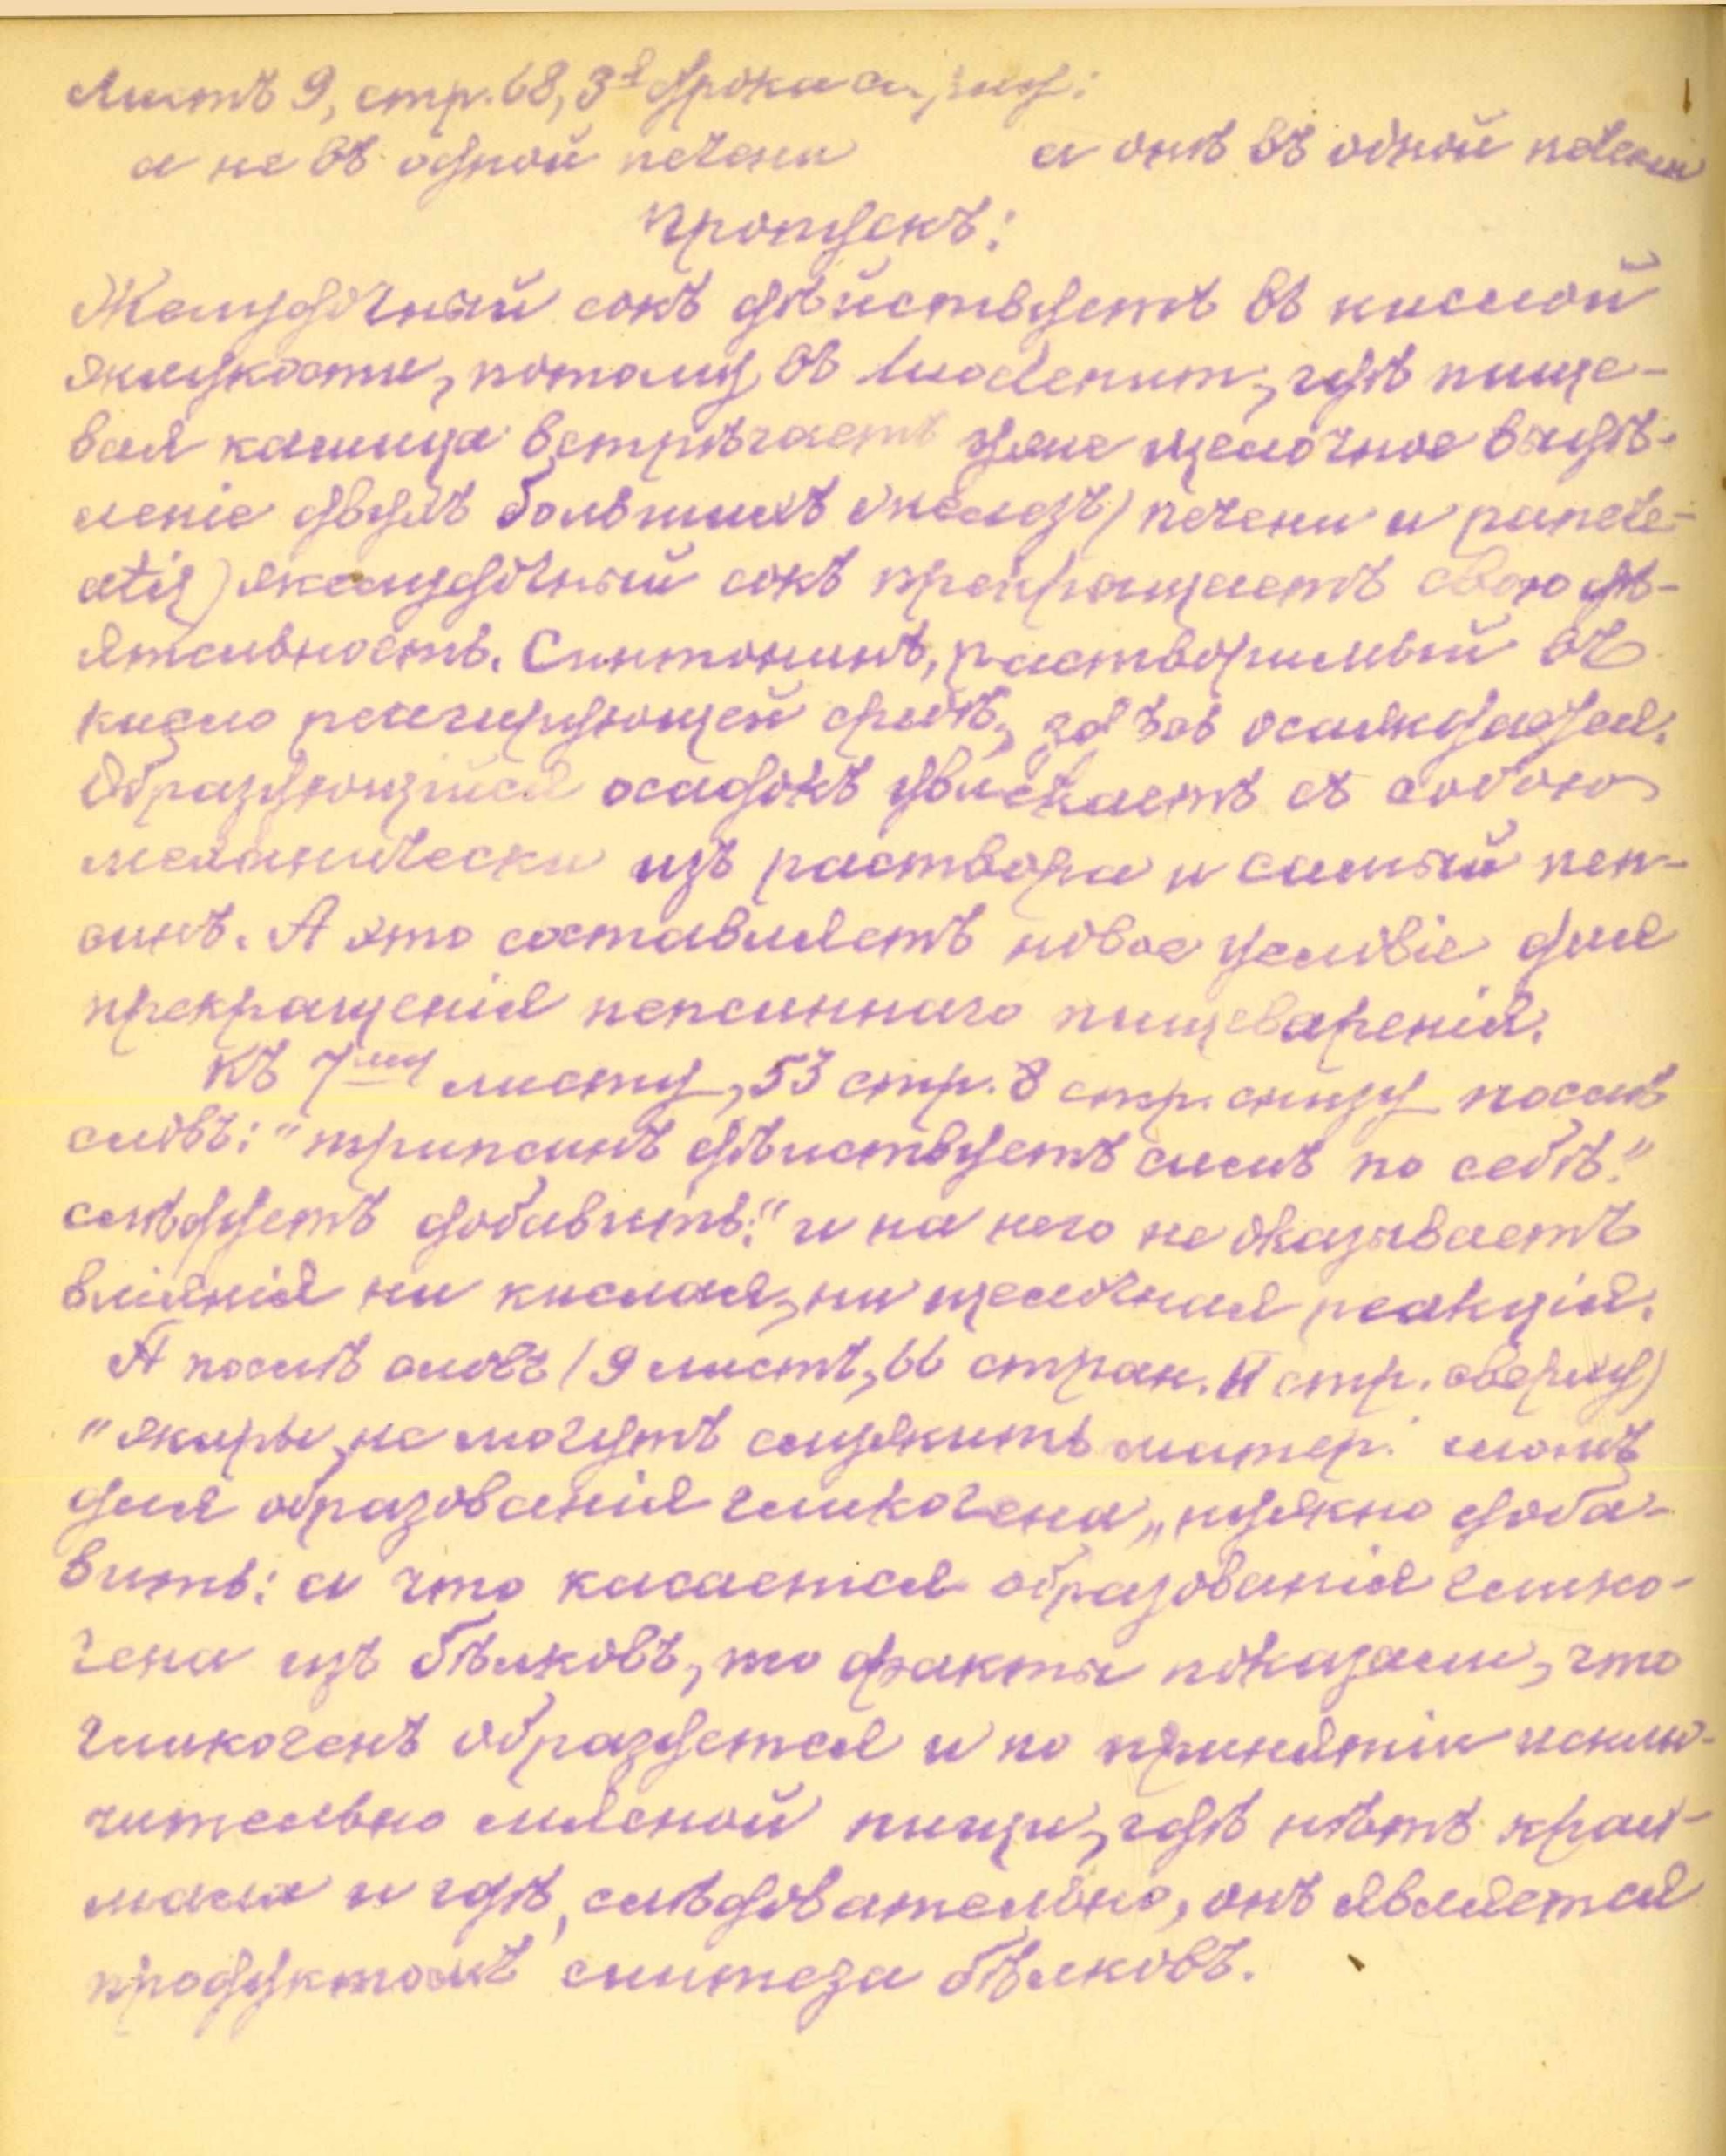 Листъ 9, стр. 68, 3я строка
а не въ одной печени а онъ въ одной печени
Пропускъ:
Желудочный сокъ дѣйствуетъ въ кислой
жидкости, потому въ duodenum, гдѣ пище-
вая кашица встрѣчаетъ уже щелочное выдѣ-
леніе двухъ большихъ железъ) печени и pancre-
atis) желудочный сокъ прекращаетъ свою дѣ-
ятельность. Синтонинъ, растворимый въ
кисло реагирующей средѣ, осаждается.
Образующійся осадокъ увлекаетъ съ собою
механически изъ раствора и самый пеп-
синъ. А это составляетъ новое условіе для
прекращенія пепсиннаго пищеваренія.
Къ 7му листу, 53 стр. 8 стр. снизу послѣ
словъ: "трипсинъ дѣиствуетъ самъ по себѣ."
слѣдуетъ добавить: "и на него не оказываетъ
вліянія ни кислая, ни щелочная реакція.
А послѣ словъ (9 листъ, 66 стран. 11 стр. сверху)
"жиры не могутъ служить матер.
для образованія гликогена„ нужно доба-
вить: а что касается образованія глико-
гена изъ бѣлковъ, то факты показали, что
гликогенъ образуется и по принятіи исклю-
чительно мясной пищи, гдѣ нѣтъ крах-
мала и гдѣ, слѣдовательно, онъ является
продуктомъ синтеза бѣлковъ.